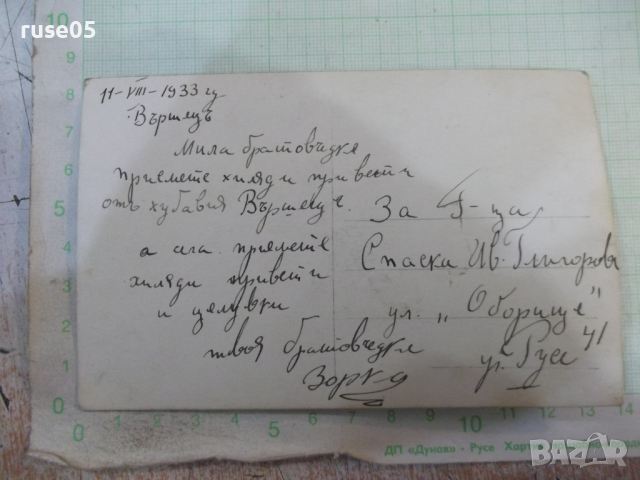 ruse05
11-VIII-1933 г
Вършецъ
Мила братовчедке
приемете хиляди привети
отъ хубавия Вършецъ.
а сега приемете
хиляди привети
и целувки
твоя братовчедка
Зорка
За Г-ца
Спаска Ив. Григорова
ул. „Оборище" 41
гр. Русе
ДП «Дунав» - Русе
BAZAR
bg